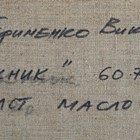 Ефименко Вик
ник" 60.7
лст масло